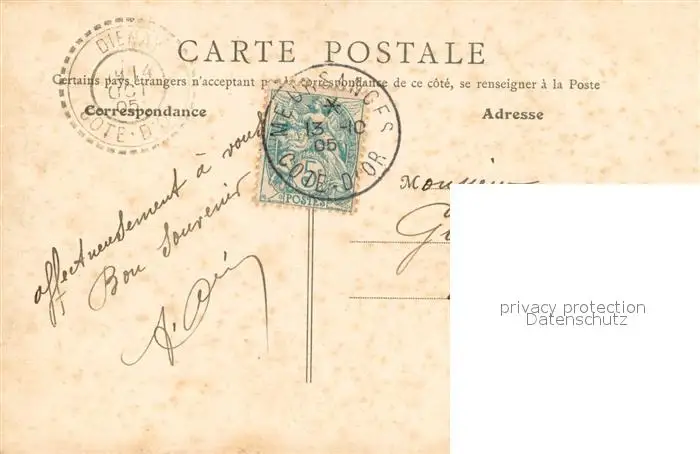 CARTE POSTALE
Certains pays étrangers n'acceptant pas la correspondance de ce côté, se renseigner à la Poste
Correspondance
Adresse
DIENAY
14
05
COTE-D'OR
13 -10
05
COTE-D'OR
5
POSTES
affectueusement à vous
Bon souvenir
Monsieur
privacy protection
Datenschutz